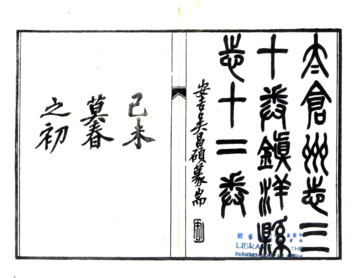 太倉州志三
十卷鎮洋縣
志十二卷
安吉吳昌碩篆耑
己未
莫春
之初